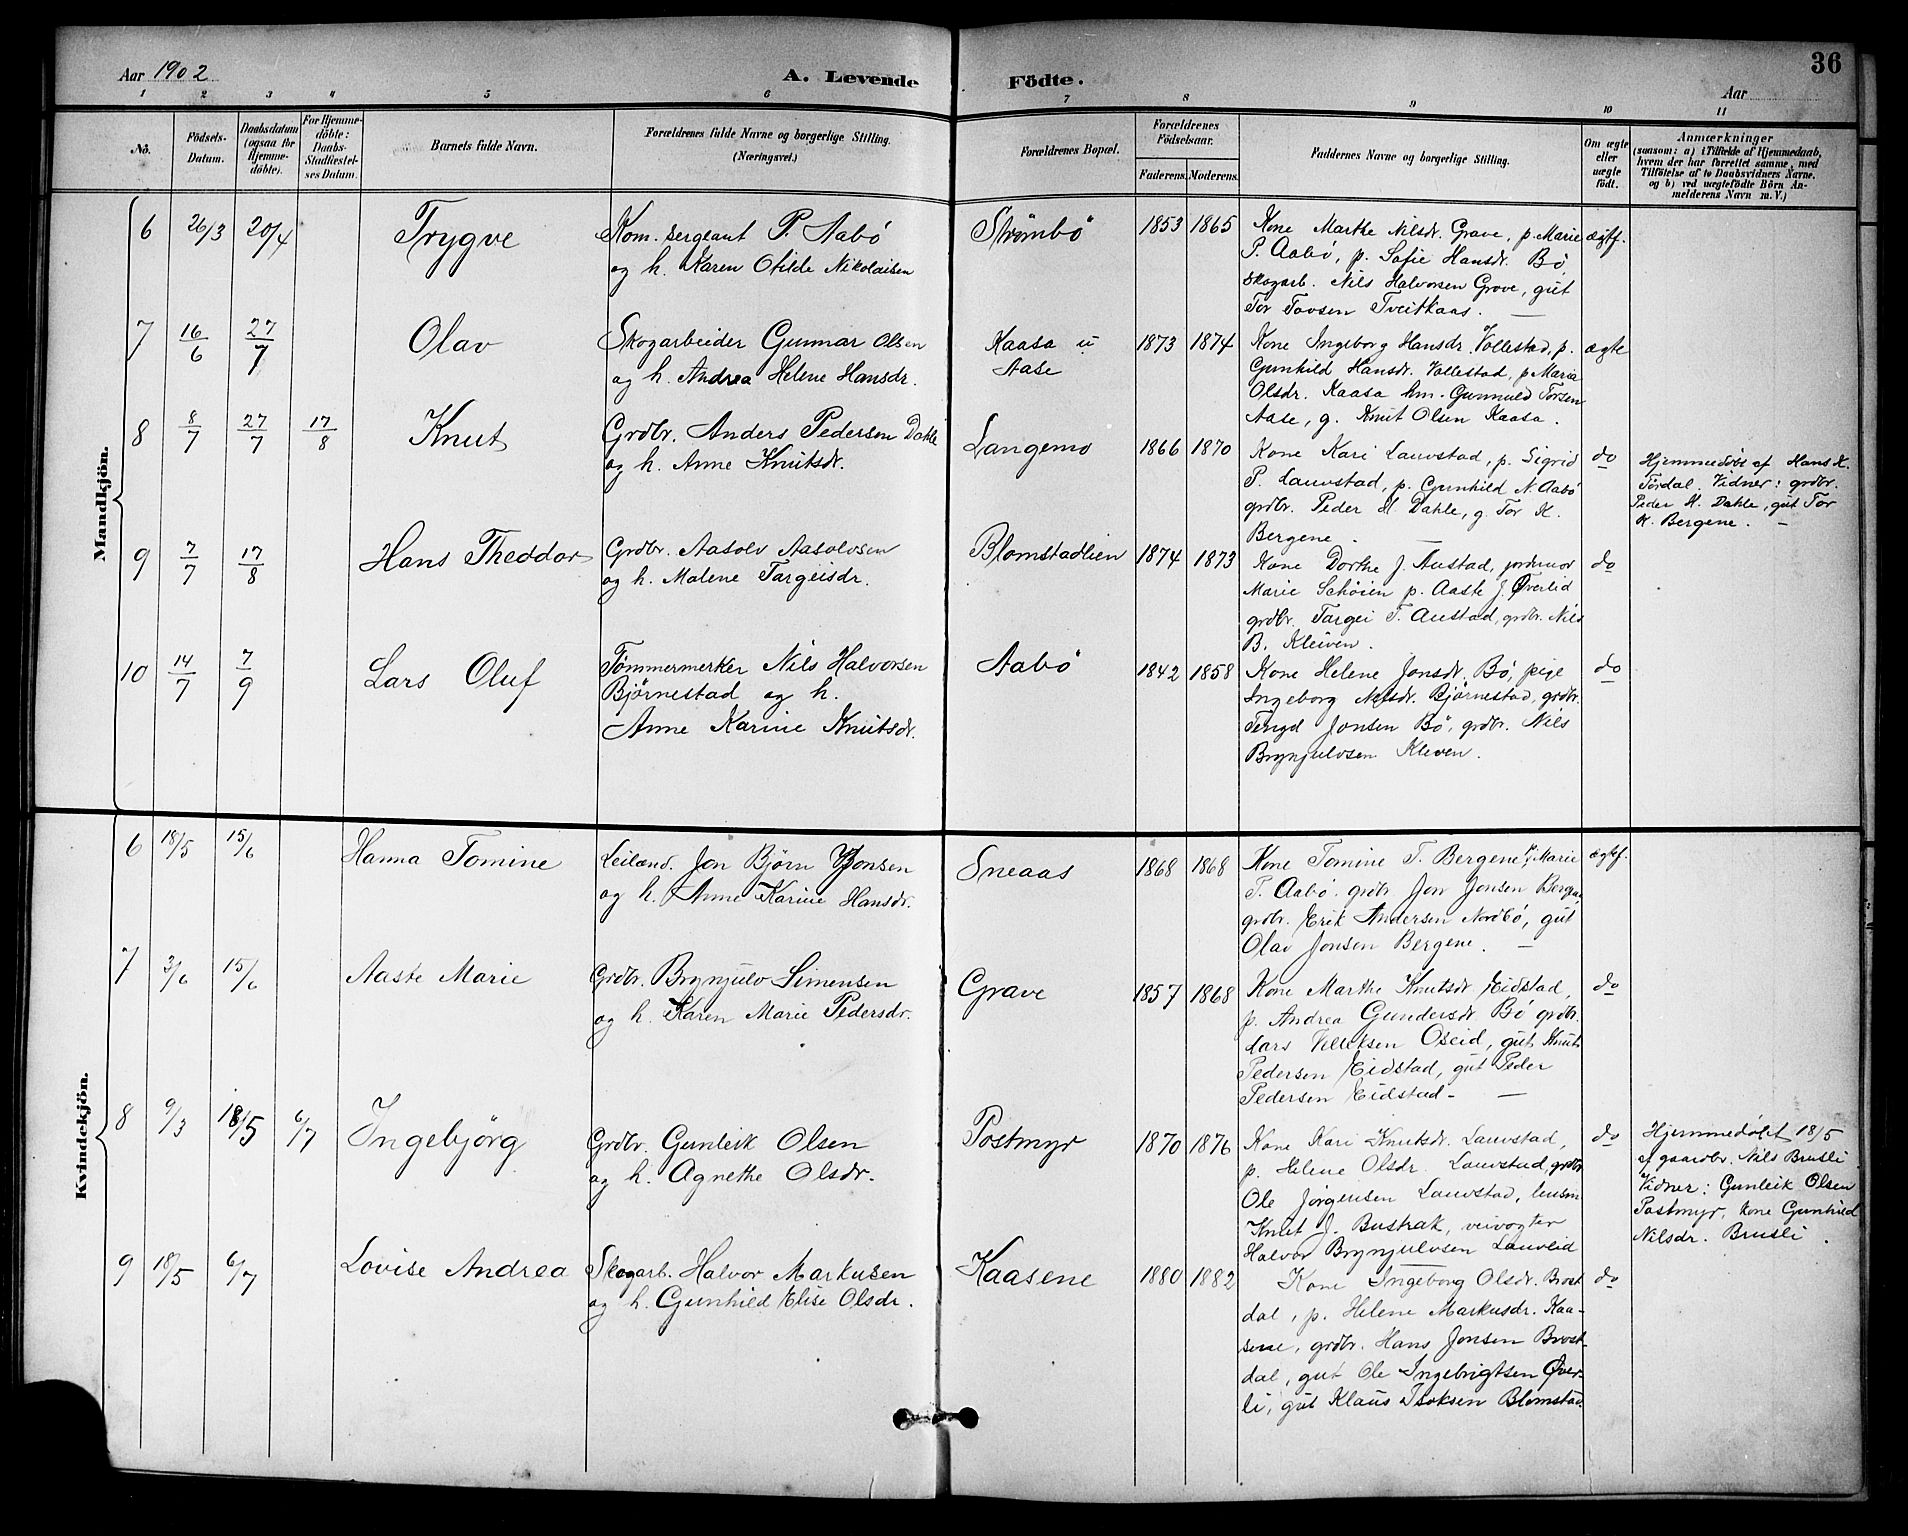 Aar 1902
A. Levende
Födte.
Aar
36
1 2 3 4 5 6 7 8 9 10 11
No.
Födsels-
Datum.
Daabsdatum
(ogsaa for
Hjemme-
döbte).
For Hjemme-
döbte:
Daabs-
Stadfæstel-
ses Datum.
Barnets fulde Navn.
Forældrenes fulde Navne og borgerlige Stilling.
(Næringsvei.)
Forældrenes Bopæl.
Forældrenes
Födselsaar.
Faderens. Moderens.
Faddernes Navne og borgerlige Stilling.
Om ægte
eller
uægte
født.
Anmærkninger
(saasom: a) i Tilfælde af Hjemmedaab,
hvem der har forrettet samme, med
Tilföielse af to Daabsvidners Navne.
og b) ved uægtefödte Börn An-
melderens Navn m. V.)
Mandkjön.
6 26/3 20/4 Trygve
Kom. sergeant P. Aabö
og h. Karen Otilde Nikolaisen
Strømbö 1853 1865
Kone Marthe Nilsdr. Grave, p. Marie
P. Aabö, p. Sofie Hansdr. Bö
skogarb. Nils Halvorsen Grave, gut
Tor Tovsen Tveitkaas. —
ægtf.
7 16/6 27/7 Olav
Skogarbeider Gunnar Olsen
og h. Andrea Helene Hansdr.
Kaasa u
Aase
1873 1874
Kone Ingeborg Hansdr. Vollestad, p.
Gunhild Hansdr. Vollestad, p. Maria
Olsdr. Kaasa hm. Gunnuld Torsen
Aase, g. Knut Olsen Kaasa.
ægte
8 8/7 27/7 17/8 Knut
Grdbr. Anders Pedersen Dahle
og h. Anne Knutsdr.
Langemo 1866 1870
Kone Kari Lauvstad, p. Sigrid
P. Lauvstad, p. Gunhild N. Aabö
grdbr. Peder H Dahle, g. Tor K.
Bergene. —
do
Hjemmedöbt af Hans K.
Tördal. Vidner: grdbr.
Peder H. Dahle, gut Tor
K. Bergene. —
9 7/7 17/8 Hans Theddor
Grdbr. Aasolv Aasolvsen
og h. Malene Targeisdr.
Blomstadlien 1874 1873
Kone Dorthe J. Austad, jordmor
Marie Schöien p. Aaste J. Øverlid
grdbr. Targei T. Austad, grdbr. Nils
B. Kleiven.
do
10 14/7 7/9 Lars Oluf
Tömmermerker Nils Halvorsen
Björnestad og h.
Anne Karine Knutsdr.
Aabö 1842 1858
Kone Helene Jonsdr. Bö, pige
Ingeborg Nilsdr. Björnestad, grdbr.
Jonsen Bö, grdbr. Nils
Brynjulvsen Kleven.
do
Kvindekjön.
6 18/5 15/6 Hanna Tomine
Leiland. Jon Björn Jonsen
og h. Anne Karine Hansdr.
Sneaas 1868 1868
Kone Tomine T. Bergene, p. Marie
P. Aabö. grdbr Jon Jonsen Bergene,
grdbr. Erik Andersen Nordbö, gut
Olav Jonsen Bergene. —
ægtf.
7 3/6 15/6 Aaste Marie
Grdbr. Brynjulv Simensen
og h. Karen Marie Pedersdr.
Grave 1857 1868
Kone Marthe Knutsdr Eidstad,
p. Andrea Gundersdr Bö grdbr.
Lars Oseid, gut Knut
Pedersen Eidstad, gut Peder
Pedersen Eidstad. —
do
8 9/3 18/5 6/7 Ingebjörg
Grdbr. Gunleik Olsen
og h. Agnethe Olsdr.
Postmyr 1870 1876
Kone Kari Knutsdr. Lauvstad,
p. Helene Olsdr. Lauvstad, grdbr
Ole Jörgensen Lauvstad, lensm
Knut J. Bustrak, veivogter
Halvor Brynjulvsen Lauvlid
do
Hjemmedøbt 18/5
af gaardbr. Nils Brusli
Vidner: Gunleik Olsen
Postmyr, kone Gunhild
Nilsdr. Brusli.
9 18/5 6/7 Lovise Andrea
Skogarb. Halvor Markusen
og h. Gunhild Elise Olsdr.
Kaasene 1880 1882
Kone Ingeborg Olsdr. Brost
dal, p. Helene Markusdr. Kaa-
sene, grdbr. Hans Jonsen Brost-
dal, gut Ole Ingebrigtsen Øver-
li, gut Klaus Isaksen Blomstad.
do